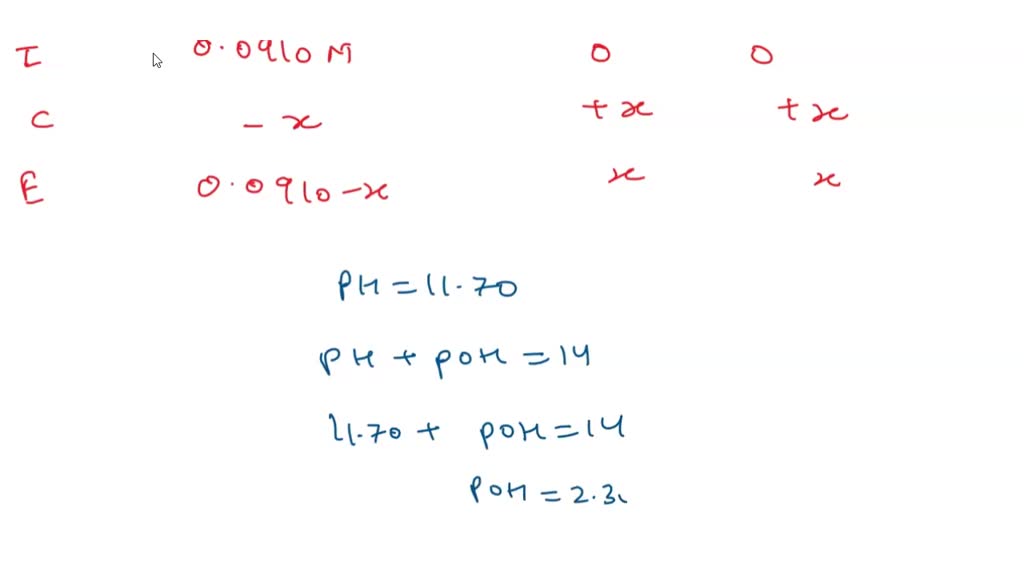 I 0.0910 M 0 0
C - x + x + x
E 0.0910 - x x x
PH = 11.70
PH + POH = 14
11.70 + POH = 14
POH = 2.3